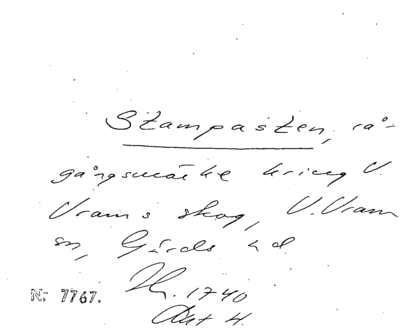 Stampasten, rå-
gångsmärke kring V.
Vrams skog, V. Vram
sn, Gärds hd.
1740
Akt 4.
Nr 7767.